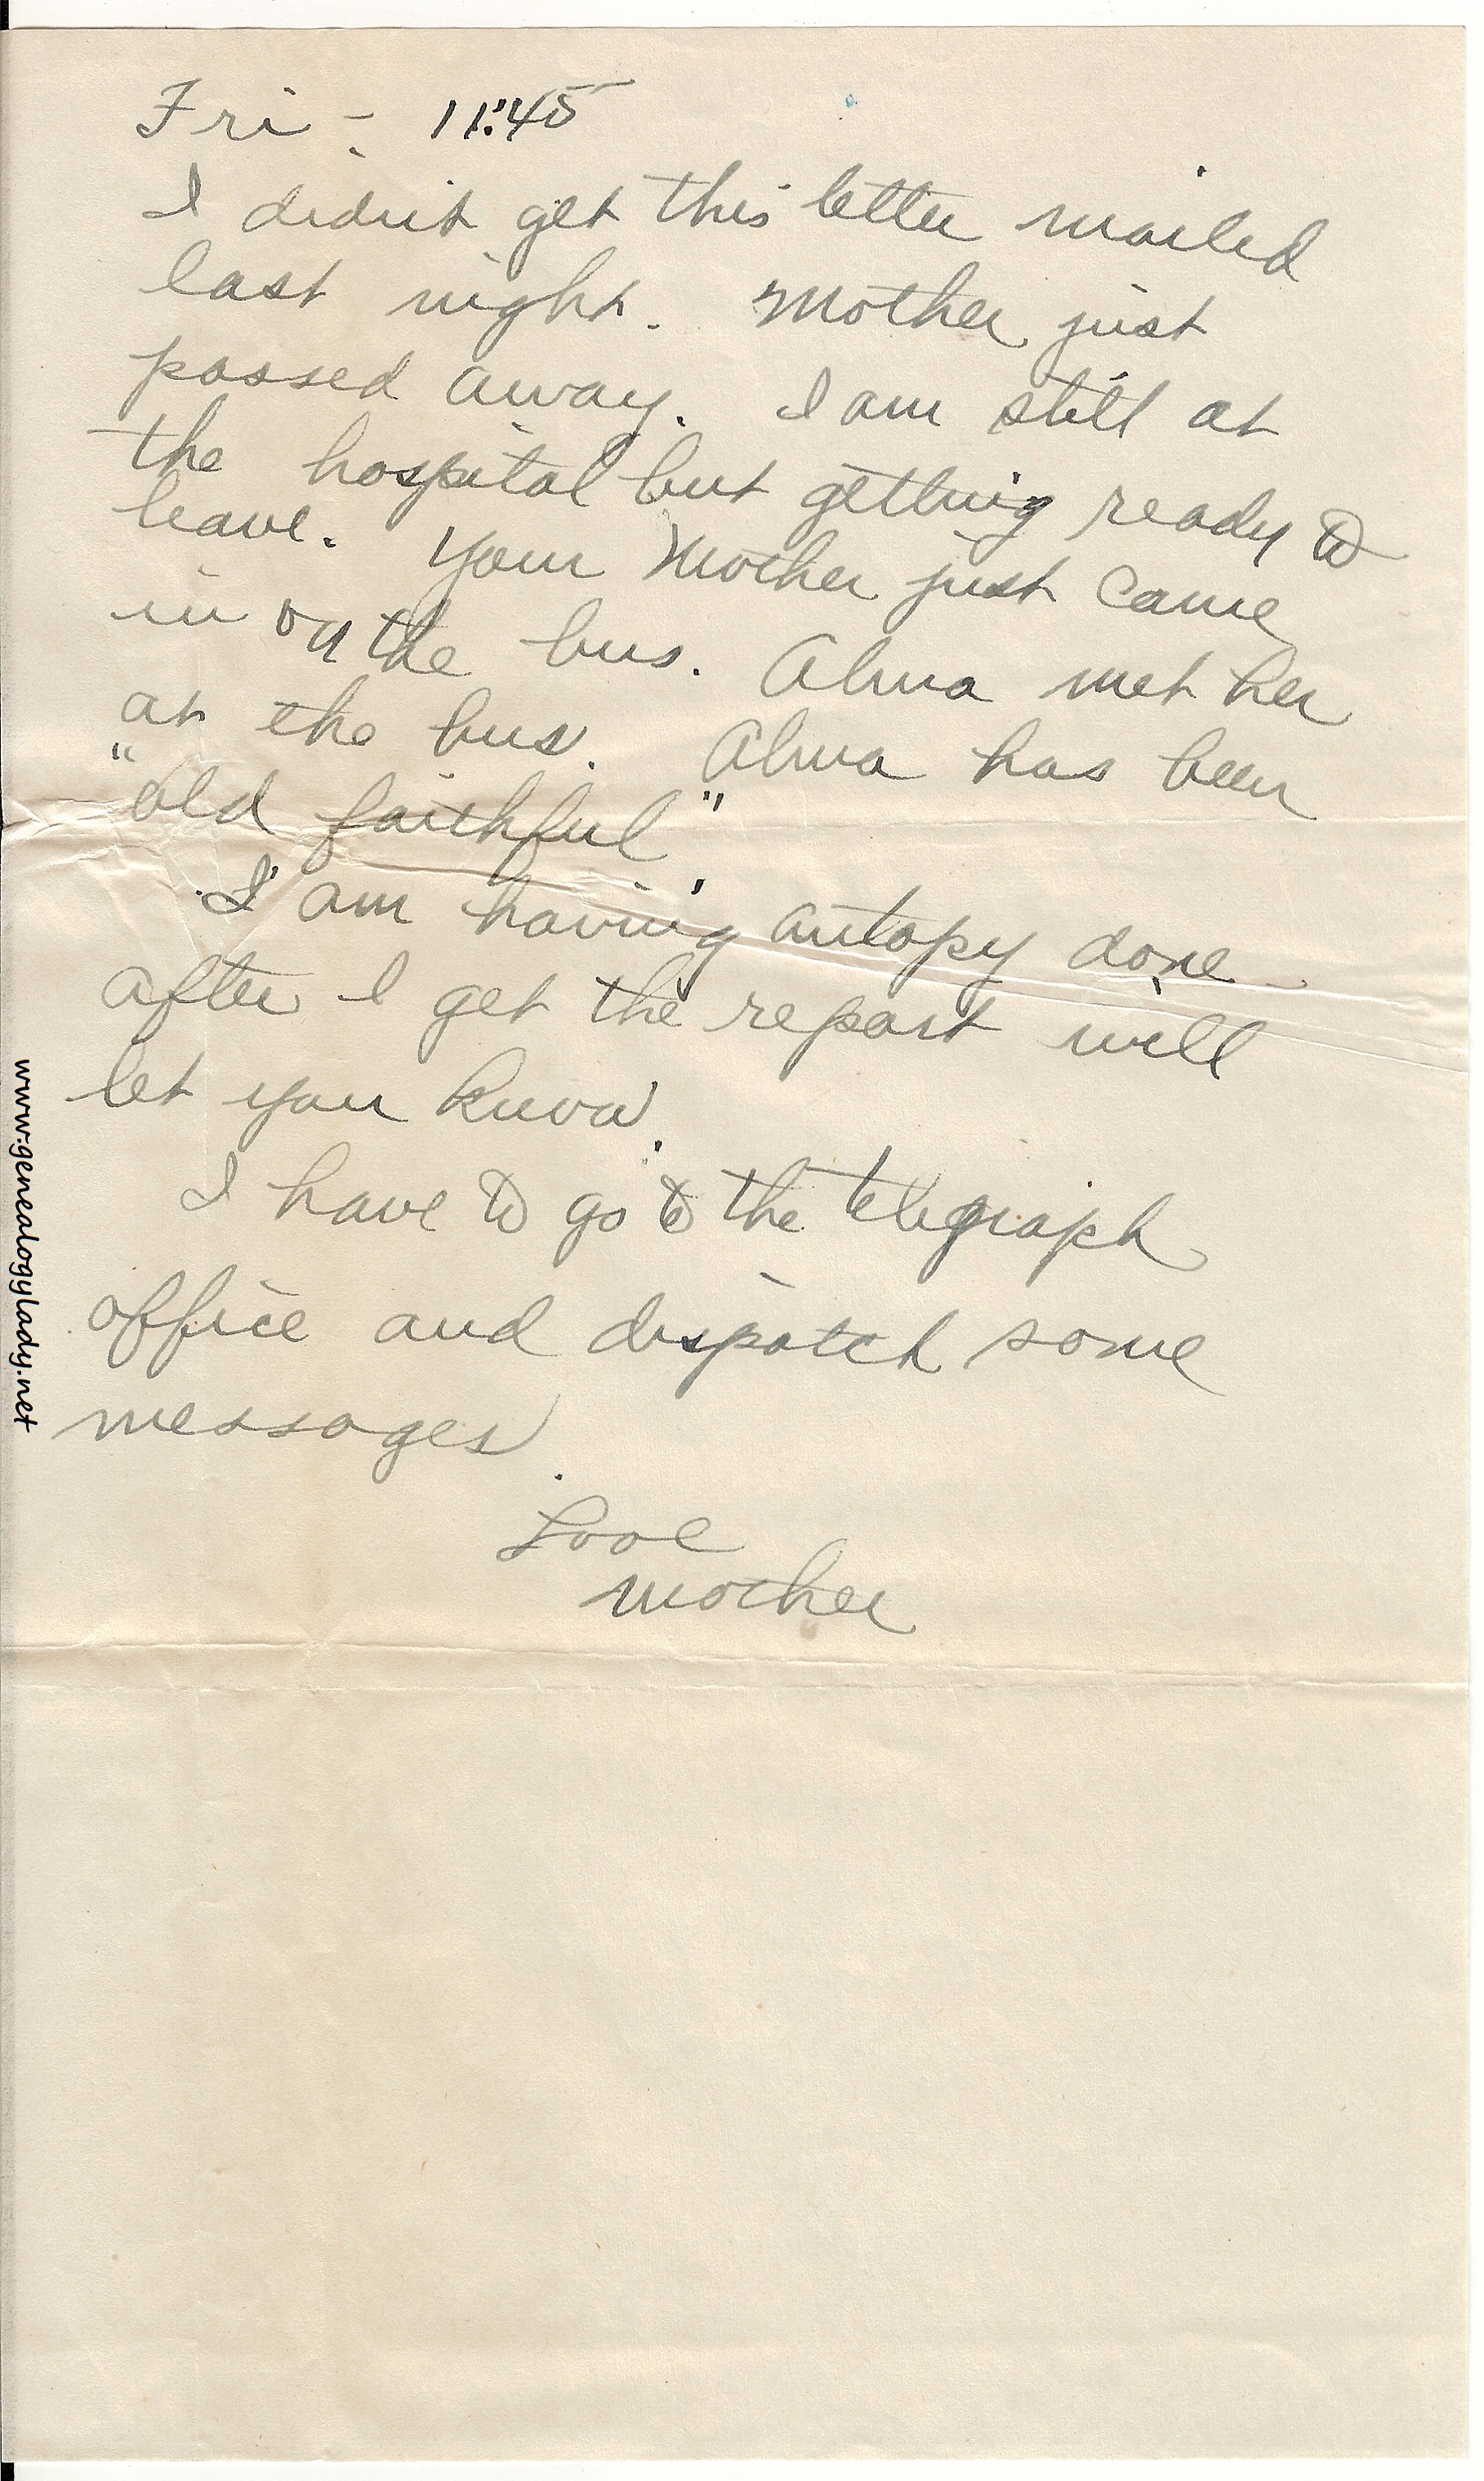 Fri - 11:45
I didn't get this letter mailed
last night. Mother just
passed away. I am still at
the hospital but getting ready to
leave. Your Mother just came
in on the bus. Alma met her
at the bus. Alma has been
"old faithful"
I am having autopy done -
after I get the report will
let you know.
I have to go to the telegraph
office and dispatch some
messages.
Love
Mother
www.genealogylady.net